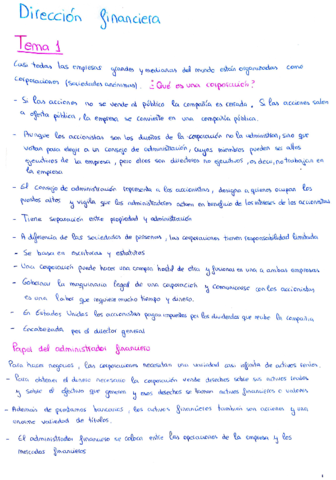 Dirección financiera
Tema 1
Casi todas las empresas grandes y medianas del mundo están organizadas como
corporaciones (sociedades anónimas). ¿Qué es una corporación?
- Si las acciones no se vende al público la compañía es cerrada. Si las acciones salen
a oferta pública, la empresa se convierte en una compañía pública.
- Aunque los accionistas son los dueños de la corporación no la administran, sino que
votan para elegir a un consejo de administración, cuyos miembros pueden ser altos
ejecutivos de la empresa, pero otros son directores no ejecutivos, es decir, no trabajan en
la empresa.
- El consejo de administración representa a los accionistas, designa a quienes ocupan los
puestos altos y vigila que los administradores actúen en beneficio de los intereses de los accionistas
- Tiene separación entre propiedad y administración
- A diferencia de las sociedades de personas, las corporaciones tienen responsabilidad limitada
- Se basa en escrituras y estatutos
- Una corporación puede hacer una compra hostil de otra y fusionar en una a ambas empresas
- Gobernar la maquinaria legal de una corporación y comunicarse con los accionistas
es una labor que requiere mucho tiempo y dinero.
- En Estados Unidos los accionistas pagan impuestos por los dividendos que recibe la compañía
- Encabezada por el director general
Papel del administrador financiero
Para hacer negocios, las corporaciones necesitan una variedad casi infinita de activos reales.
- Para obtener el dinero necesario la corporación vende derechos sobre sus activos reales
y sobre el efectivo que generan y esos derechos se llaman activos financieros o valores
- Además de préstamos bancarios, los activos financieros también son acciones y una
enorme variedad de títulos.
- El administrador financiero se coloca entre las operaciones de la empresa y los
mercados financieros
1